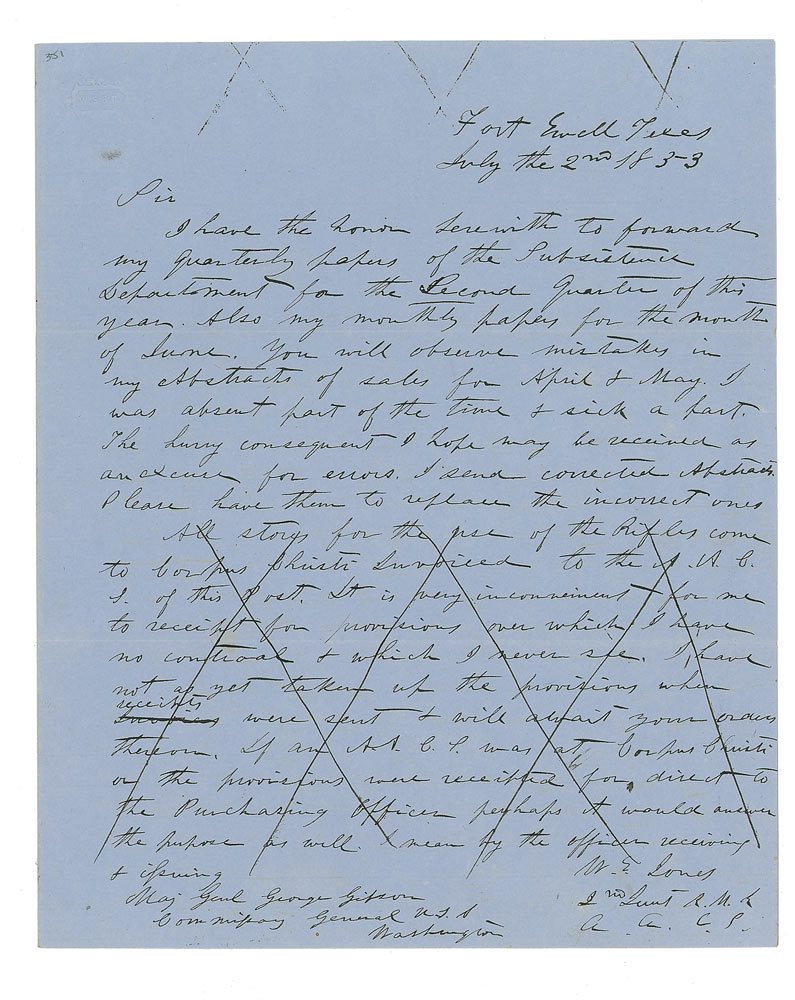 351
Fort Ewell Texas
July the 2nd 1853
Sir
I have the honor herewith to forward
my Quarterly papers of the Subsistence
Department for the Second Quarter of this
year. Also my monthly papers for the month
of June. You will observe mistakes in
my Abstracts of sales for April & May. I
was absent part of the time & sick a part.
The hurry consequent I hope may be received as
an excuse for errors. I send corrected Abstracts.
Please have them to replace the incorrect ones
All stores for the use of the Rifles come
to Corpus Christi Invoiced to the A. A. C.
S. of this Post. It is very inconvenient for me
to receipt for provisions over which I have
no controal & which I never see. I have
not as yet taken up the provisions when
receipts
Invoices were sent & will await your orders
thereon. If an A.A. C. S. was at Corpus Christi
or the provisions were receipted for direct to
the Purchasing Officer perhaps it would answer
the purpose as well. I mean by the officer receiving
& issuing
W. E. Jones
Maj Genl George Gibson
2nd Lieut R. M. R
Commissary General U.S.A
A. A. C. S.
Washington